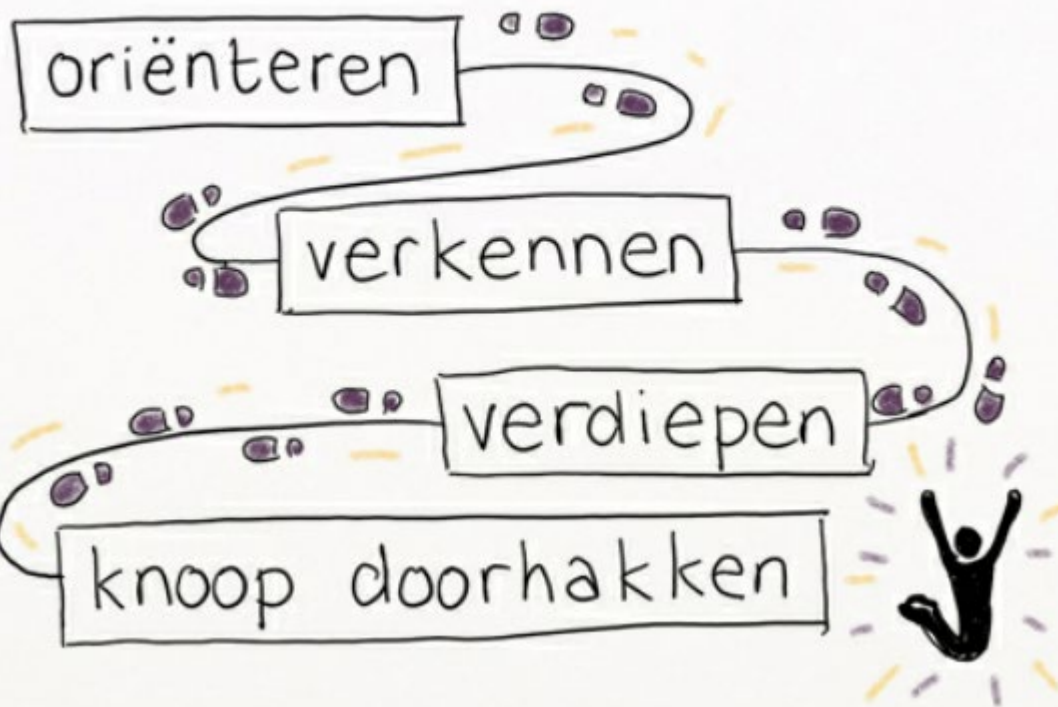 oriënteren
verkennen
verdiepen
knoop doorhakken